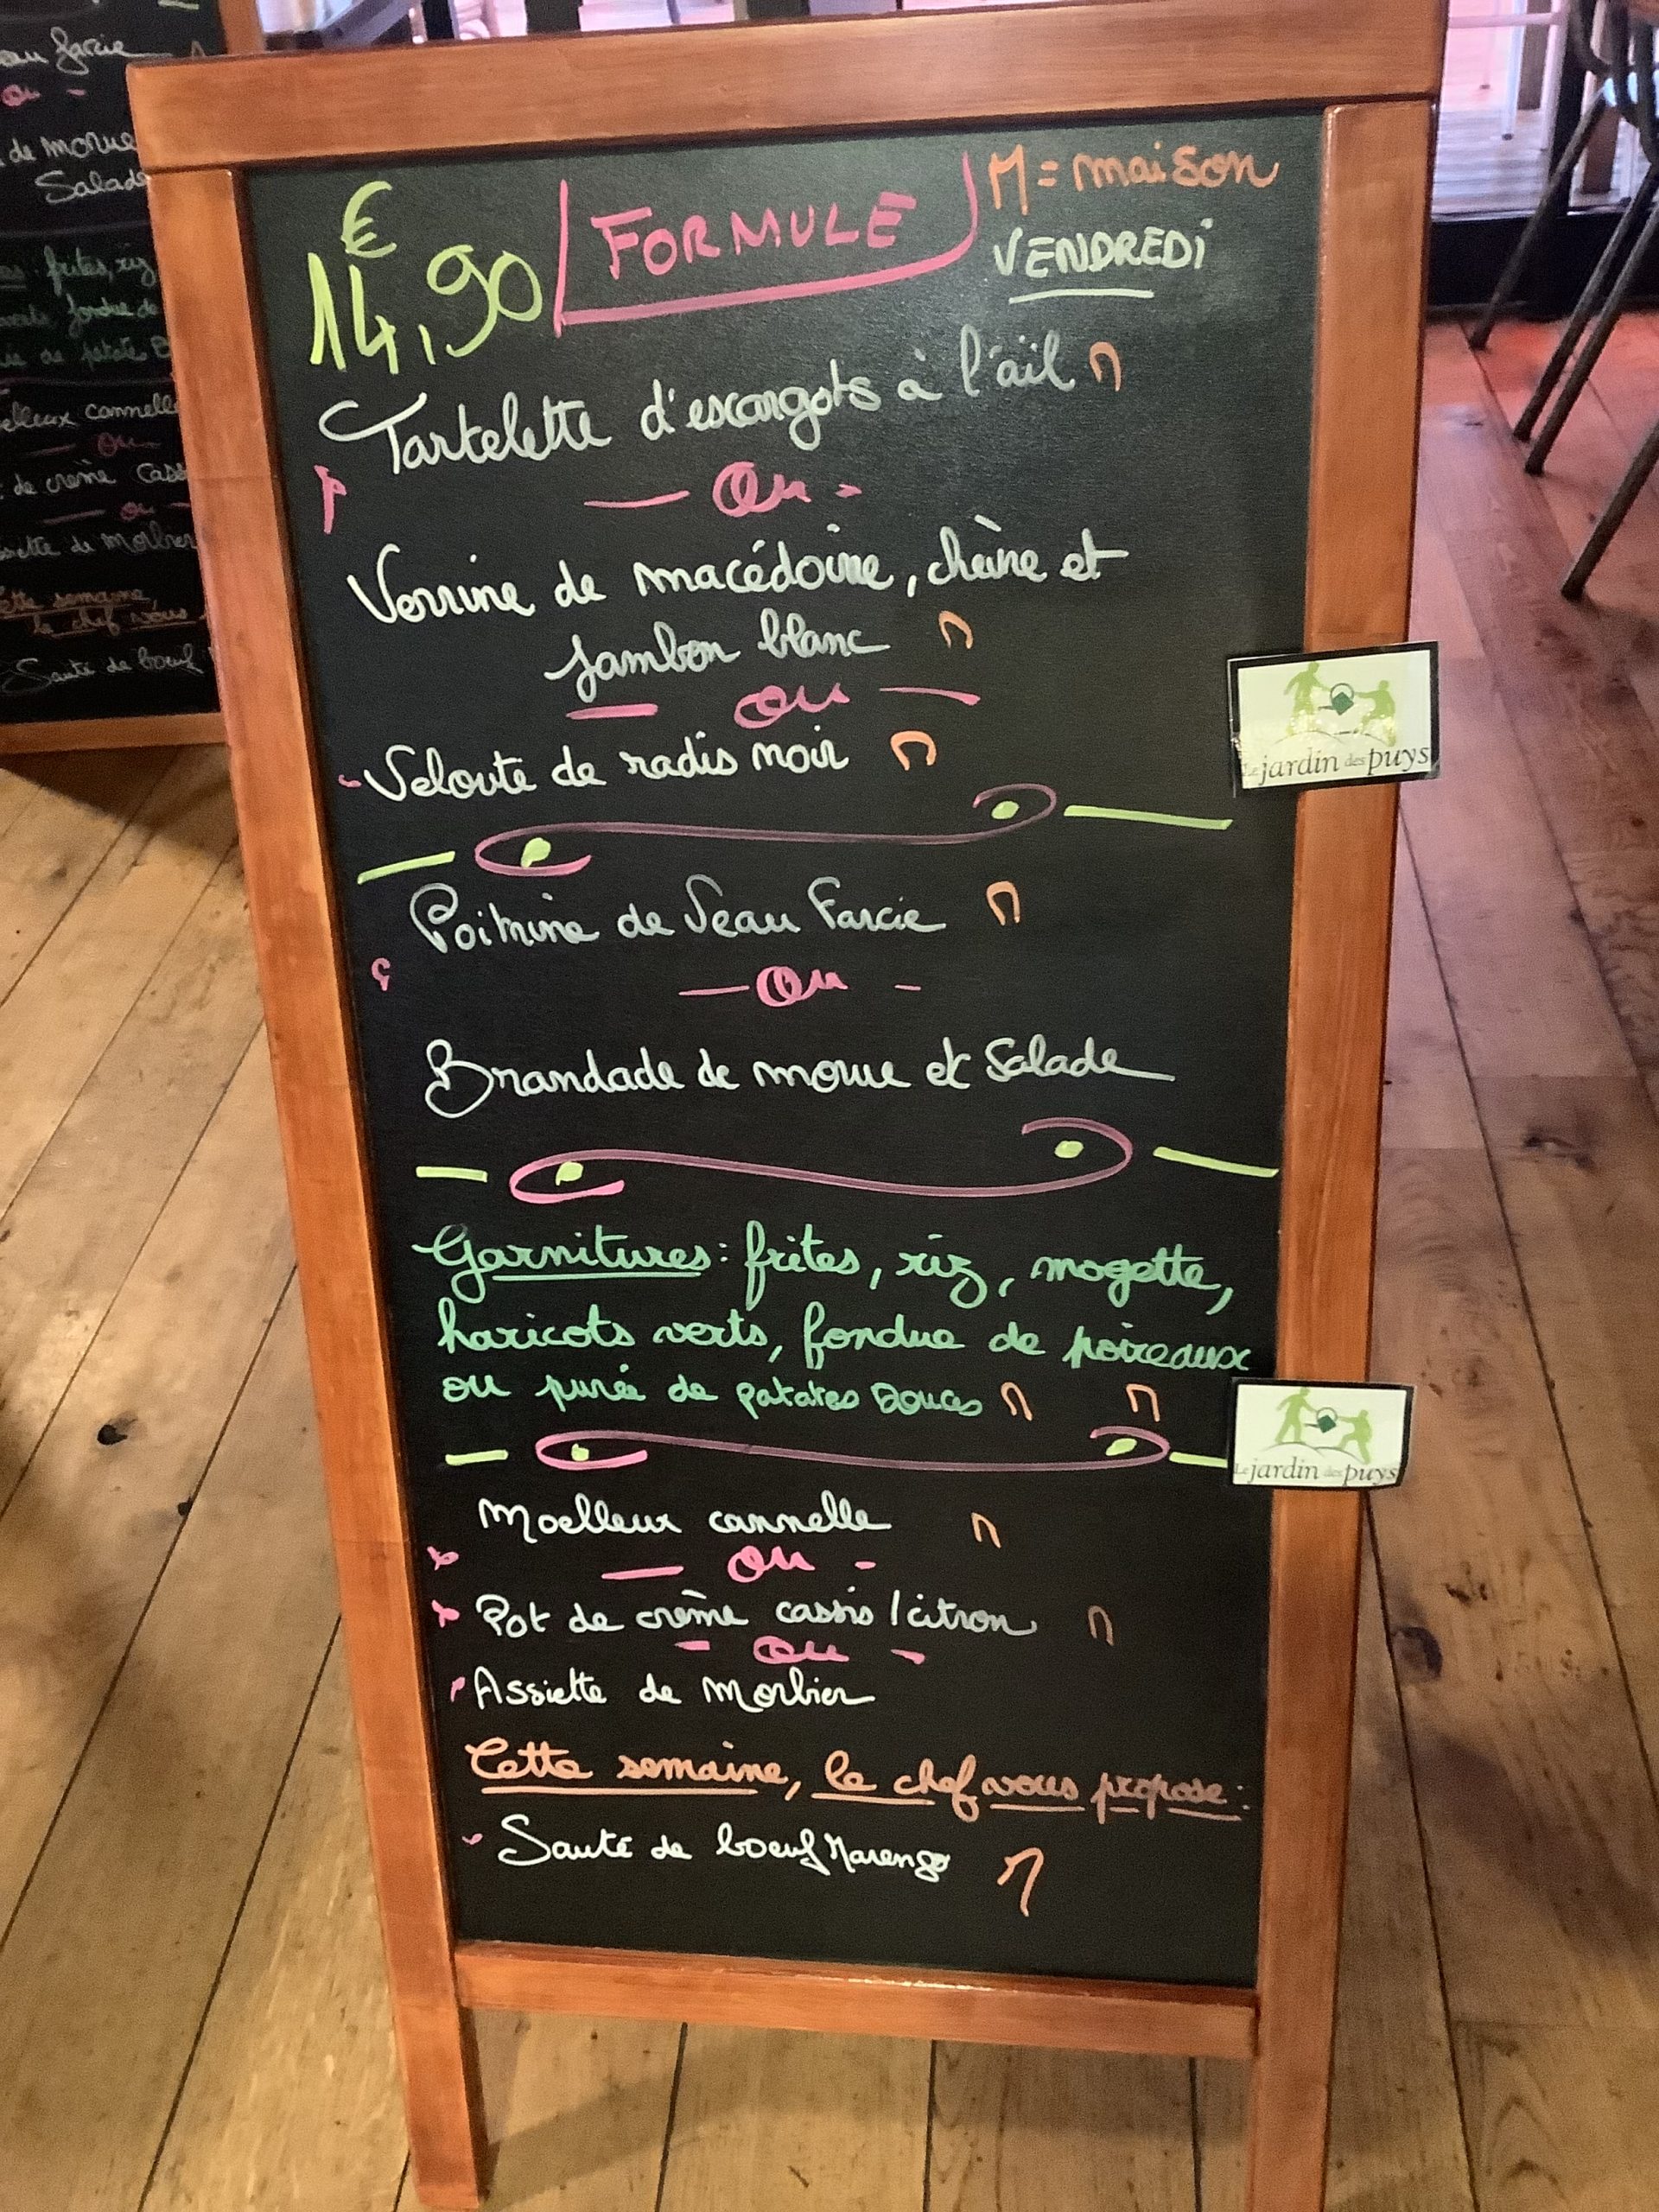 €
14,90 FORMULE
M = maison
VENDREDI
Tartelette d'escargots à l'aïl M
— Ou -
Verrine de macédoine, chèvre et
jambon blanc M
— ou —
- Velouté de radis noir M
Le jardin des puys
Poitrine de Veau Farcie M
— Ou -
Brandade de morue et Salade
Garnitures : frites, riz, mogette,
haricots verts, fondue de poireaux
ou purée de patates Douces M M
Le jardin des puys
Moelleux cannelle M
— ou -
Pot de crème cassis / citron M
- ou -
Assiette de Morbier
Cette semaine, le chef vous propose :
- Sauté de boeuf Marengo M
farcie
ou -
de morue
Salade
frites, riz
fondue de
de patate
cannelle
ou -
de crème Cass
— ou -
de Morbier
semaine,
le chef vous
Sauté de boeuf